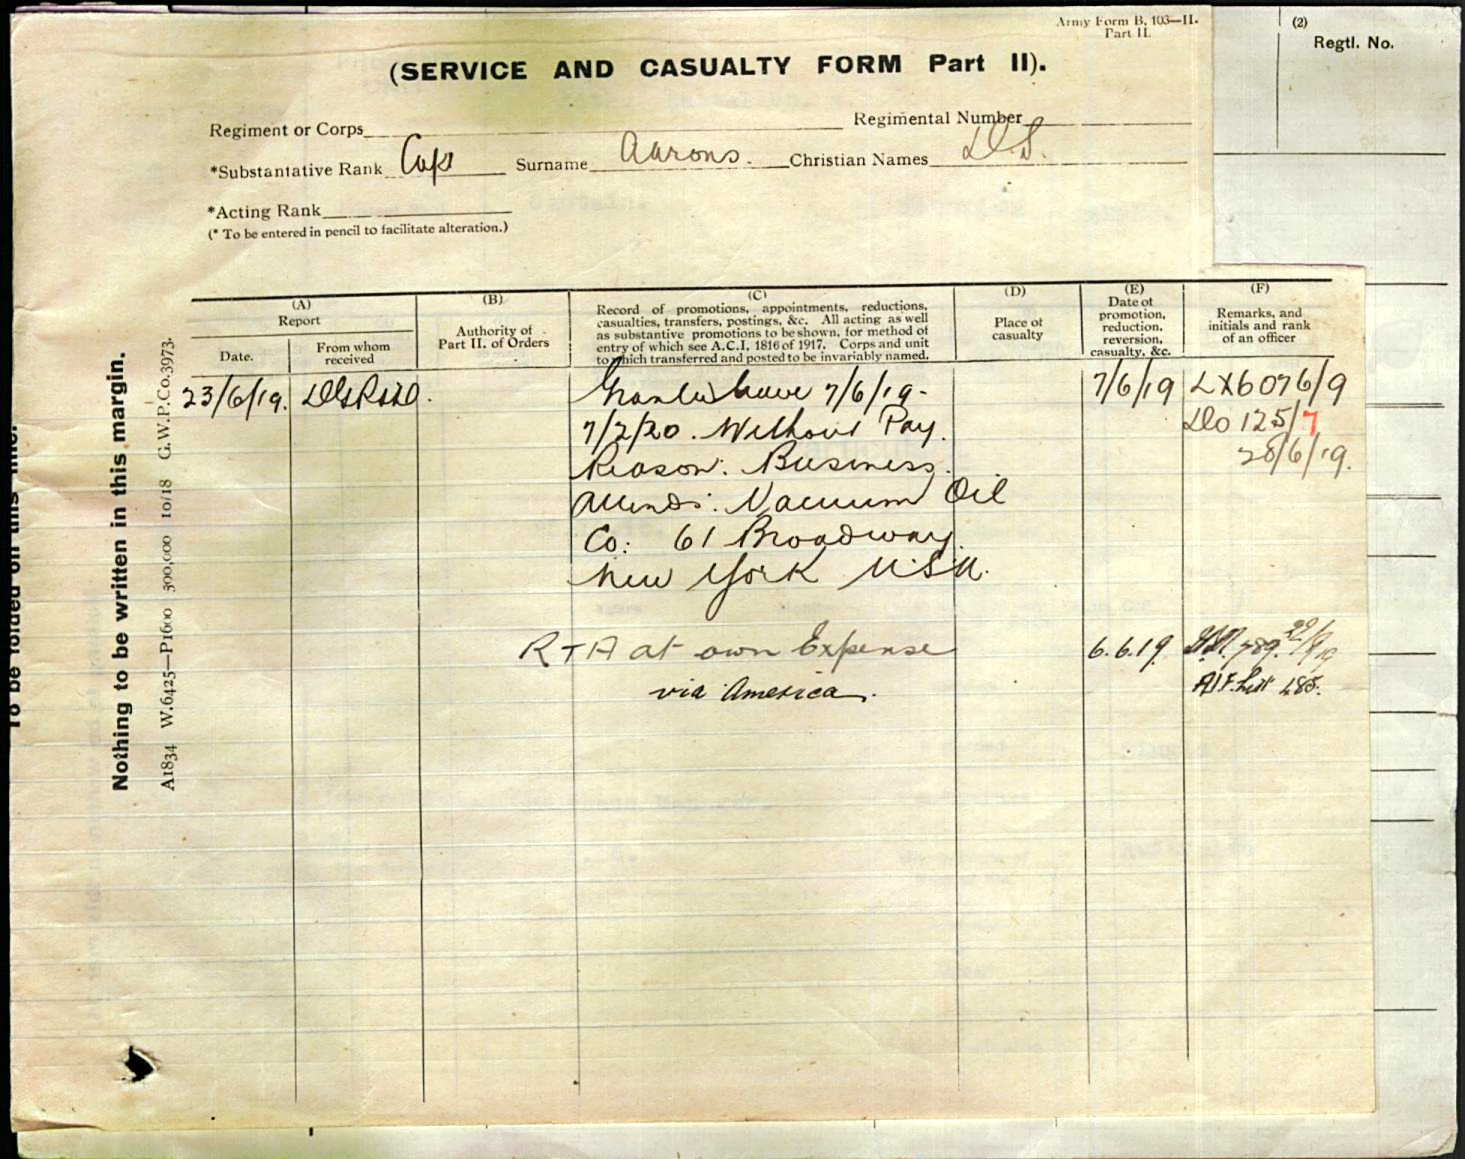 Army Form B. 103—II.
Part II.
(2)
Regtl. No.
(SERVICE AND CASUALTY FORM Part II).
Regiment or Corps
Regimental Number
*Substantative Rank Cap Surname Aarons. Christian Names D.S.
*Acting Rank
(* To be entered in pencil to facilitate alteration.)
(A)
Report
Date.
From whom
received
(B)
Authority of
Part II. of Orders
(C)
Record of promotions, appointments, reductions,
casualties, transfers, postings, &c. All acting as well
as substantive promotions to be shown, for method of
entry of which see A.C.I. 1816 of 1917. Corps and unit
to which transferred and posted to be invariably named.
(D)
Place of
casualty
(E)
Date of
promotion,
reduction,
reversion,
casualty, &c.
(F)
Remarks, and
initials and rank
of an officer
23/6/19. Granted leave 7/6/19- 7/6/19 LX6076/9
7/2/20. Without Pay. Do 125/7
Reason: Business. 28/6/19.
Attends: Vacuum Oil
Co: 61 Broadway.
New York U.S.A.
RTA at own Expense 6.6.19.
via America. AIF List 485.
To be folded on this line.
Nothing to be written in this margin.
A1834 W.6425—P1600 500,000 10/18 G.W.P.Co.3973.